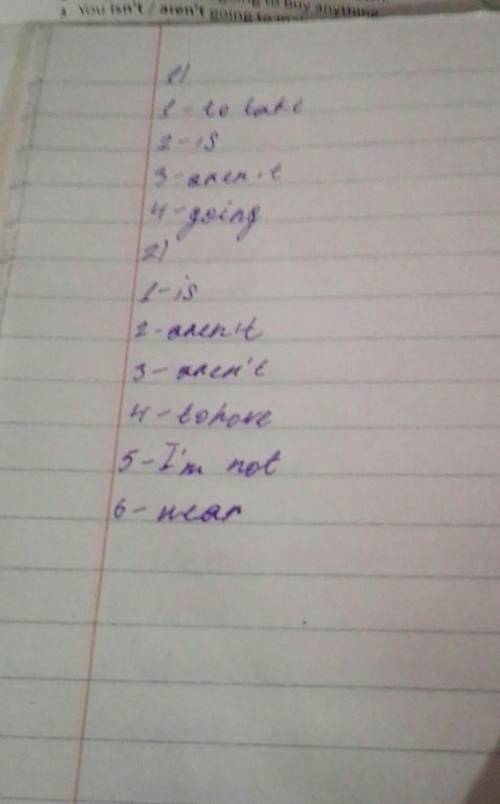 going to buy anything
3 You isn't / aren't going to
1)
1 - to take
2 - is
3 - aren't
4 - going
2)
1 - is
2 - aren't
3 - aren't
4 - to have
5 - I'm not
6 - wear